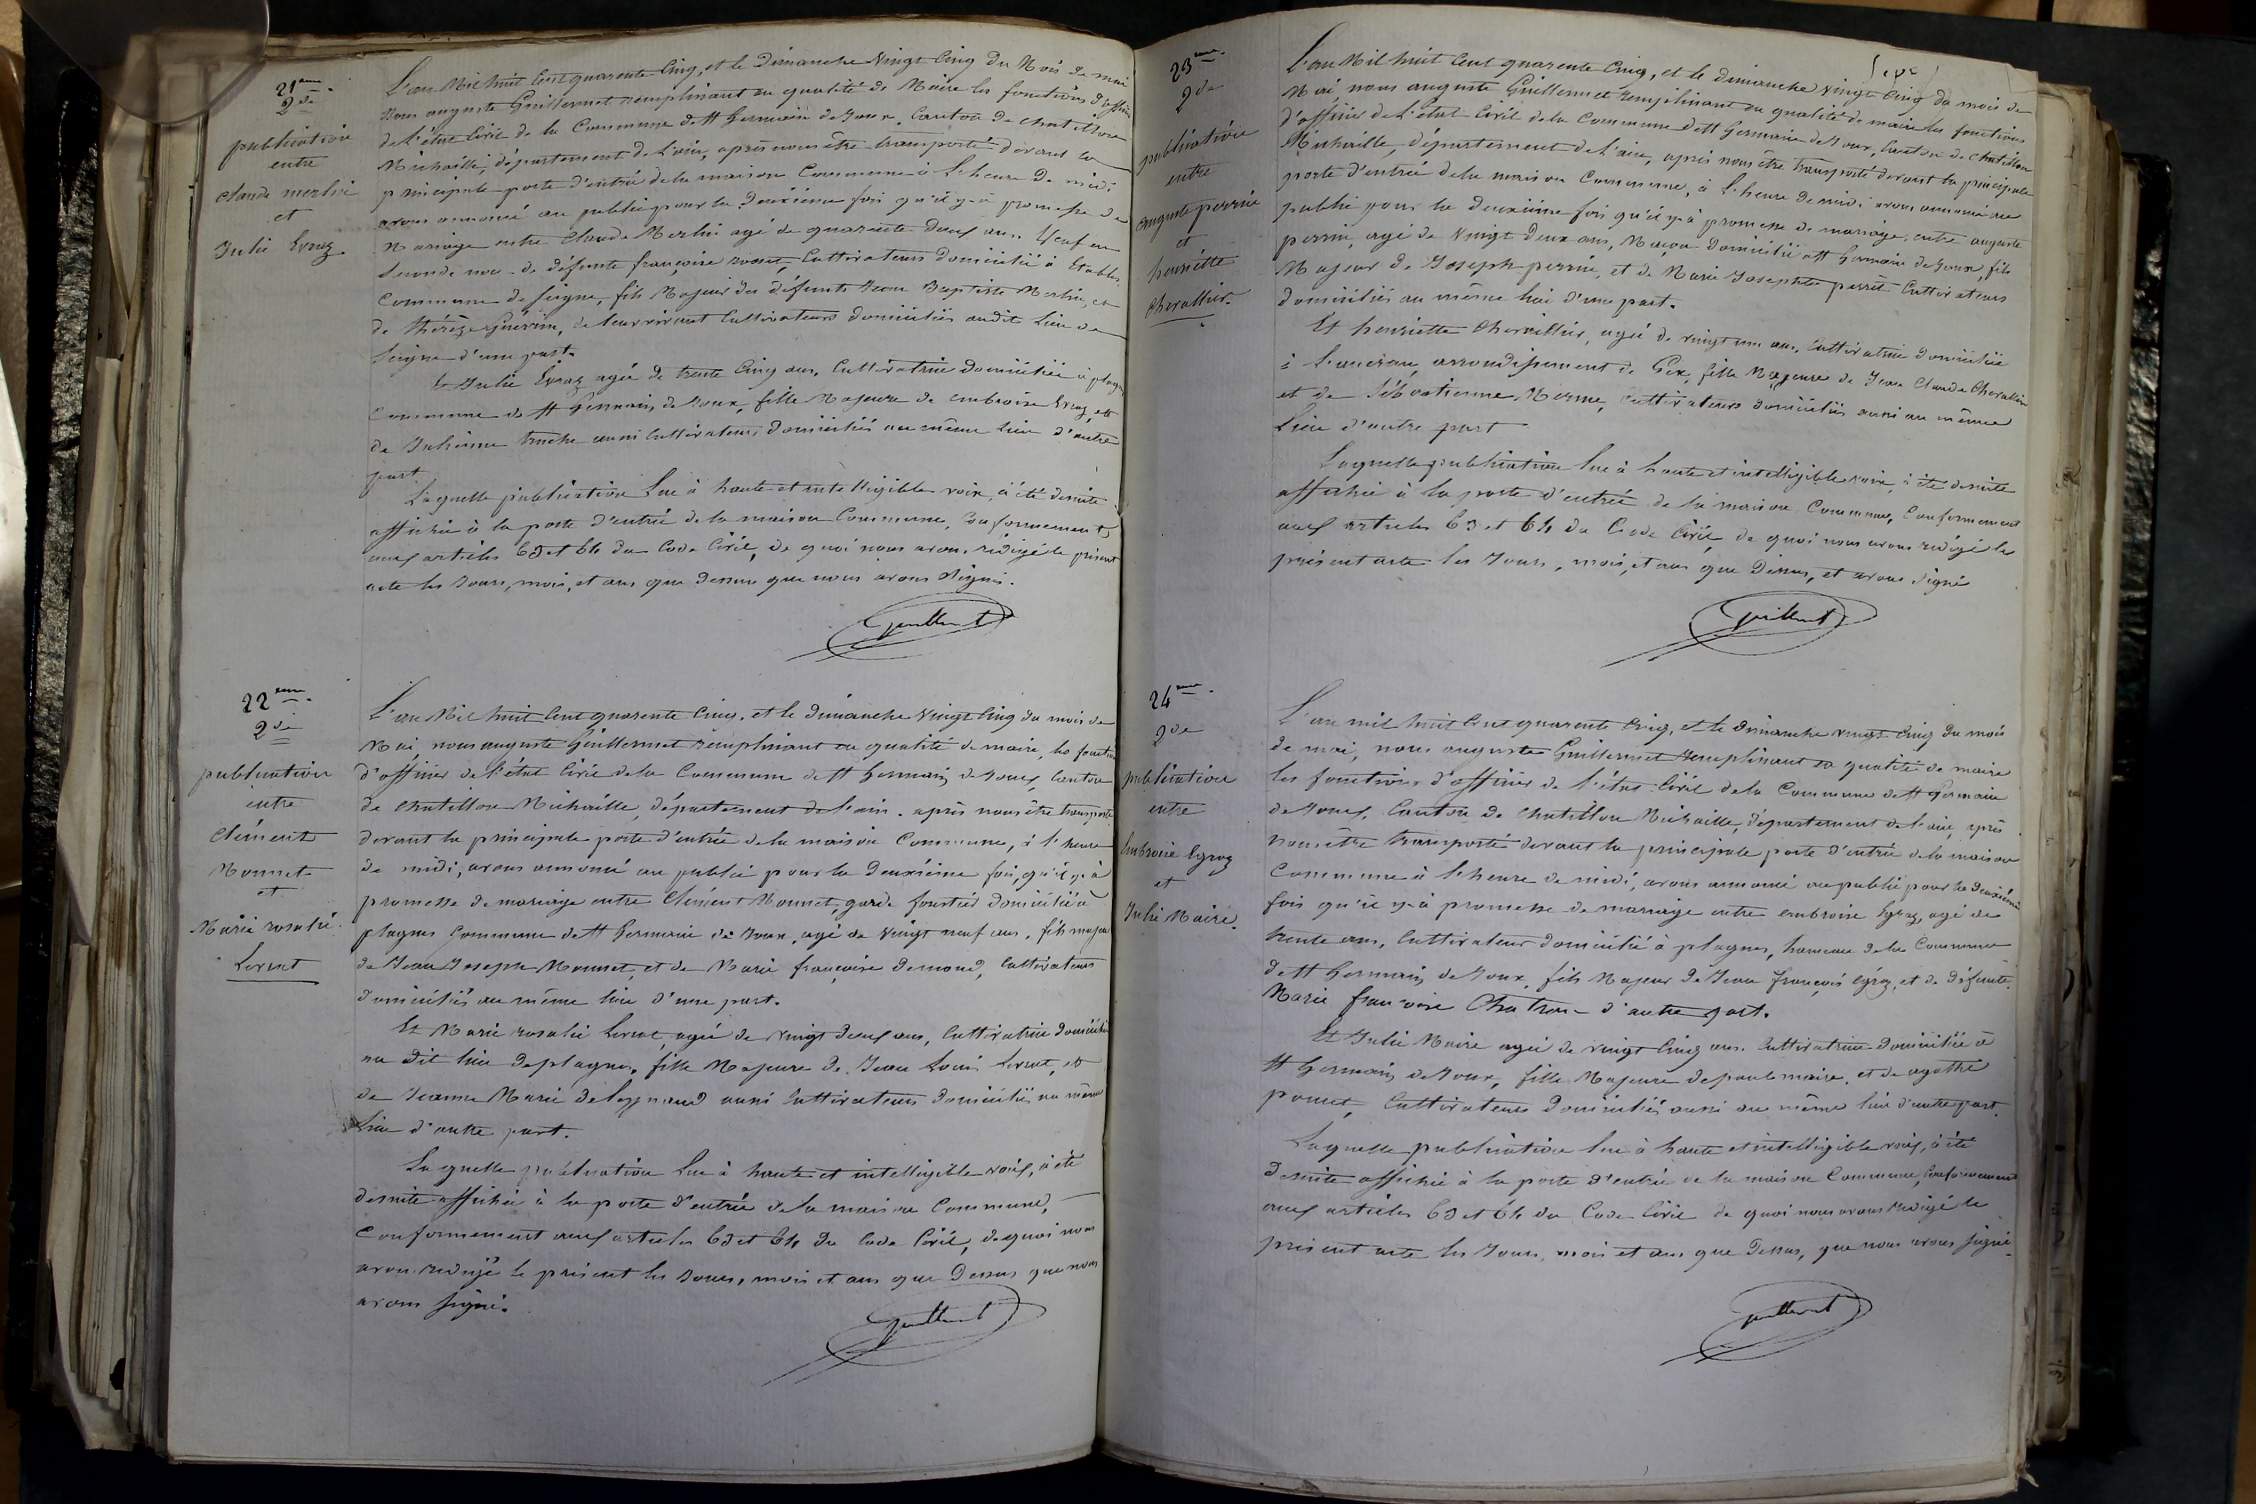 21ème
2de
publication
entre
Claude merlin
et
Julie Evraz
L'an Mil huit Cent quarente Cinq, et le Dimanche Vingt Cinq du Mois de mai
Nous auguste Guillermet remplissant en qualité de Maire les fonctions d'offi
de l'état Civil de la Commune de St Germain de Joux, Canton de Chatillon
Michaille, département de l'ain, après nous être transporté devant la
principale porte d'entrée de la maison Commune à l'heure de midi
avons annoncé au public pour la Deuxième fois qu'il y à promesse de
Mariage entre Claude Merlin agé de quarente Deux ans. Veuf en
Seconde noce de défunte françoise Cultivateur domicilié à
Commune de fils Majeur des défunts Jean Baptiste Merlin, et
de thérèze Guerrin, de leur vivant Cultivateurs domiciliés audit Lieu de
d'une part.
Et Julie Evraz agée de trente Cinq ans, Cultivatrice domiciliée à plagn
Commune de St Germain de Joux, fille Majeure de embroise Evraz, et
de Julienne aussi Cultivateurs domiciliés au même Lieu d'autre
part.
Laquelle publication Lue à haute et intelligible voix, à été de suite
affichée à la porte d'entrée de la maison Commune, Conformement
aux articles 63 et 64 du Code Civil, de quoi nous avons rédigé le présent
acte les Jours, mois, et ans que dessus que nous avons signé.
Guillermet
22ème
2de
publication
entre
Clément
Monnet
et
Marie rosalie
L'an Mil huit Cent quarente Cinq, et le dimanche Vingt Cinq du mois de
Mai, nous auguste Guillermet remplissant en qualité de maire, les fonctio
d'officier de l'état Civil de la Commune de St Germain de Joux, Canton
de Chatillon Michaille, département de l'ain. après nous être transporté
devant la principale porte d'entrée de la maison Commune, à l'heure
de midi, avons annoncé au public pour la Deuxième fois, qu'il y à
promesse de mariage entre Clément Monnet, garde forestier domicilié à
plagnes Commune de St Germain de Joux, agé de Vingt neuf ans, fils majeur
de Jean Joseph Monnet, et de Marie françoise Cultivateurs
domiciliés au même lieu d'une part.
Et Marie rosalie agée de vingt Deux ans, Cultivatrice domiciliée
au dit lieu de plagnes, fille Majeure de Jean Louis et
de Jeanne Marie aussi Cultivateurs domiciliés au même
Lieu d'autre part.
Laquelle publication Lue à haute et intelligible voix, à été
de suite affichée à la porte d'entrée de la maison Commune,
Conformement aux articles 63 et 64 du Code Civil, de quoi nous
avons rédigé le présent les Jours, mois et ans que Dessus que nous
avons signé.
Guillermet
23ème
2de
publication
entre
auguste perrin
et
henriette
Chevallier
L'an Mil huit Cent quarente Cinq, et le dimanche Vingt Cinq du mois de
Mai nous auguste Guillermet remplissant en qualité de maire les fonctions
d'officier de l'état Civil de la Commune de St Germain de Joux, Canton de Chatillon
Michaille, département de l'ain, après nous être transporté devant la principale
porte d'entrée de la maison Commune, à l'heure de midi avons annoncé au
public pour la deuxième fois qu'il y à promesse de mariage, entre auguste
perrin, agé de Vingt deux ans, Maçon domicilié à St Germain de Joux, fils
Majeur de Joseph perrin, et de Marie Josephte perrêt Cultivateurs
domiciliés au même lieu d'une part.
Et henriette Chevallier, agée de vingt un ans, Cultivatrice domiciliée
à arrondissement de Gex, fille Majeure de Jean Claude Chevallier
et de Cultivateurs domiciliés aussi au même
Lieu d'autre part
Laquelle publication lue à haute et intelligible voix, à été de suite
affichée à la porte d'entrée de la maison Commune, Conformement
aux articles 63 et 64 du Code Civil, de quoi nous avons rédigé le
présent acte les Jours, mois, et ans que Dessus, et avons signé
Guillermet
24ème
2de
publication
entre
Embroise Egraz
et
Julie Maire.
L'an mil huit Cent quarente Cinq, et le Dimanche vingt Cinq du mois
de mai, nous auguste Guillermet remplissant en qualité de maire
les fonctions d'officier de l'état Civil de la Commune de St Germain
de Joux, Canton de Chatillon Michaille, département de l'ain, après
nous être transporté devant la principale porte d'entrée de la maison
Commune à l'heure de midi, avons annoncé au public pour la deuxième
fois qu'il y à promesse de mariage entre embroise Egraz, agé de
trente ans, Cultivateur domicilié à plagnes, hameau de la Commune
de St Germain de Joux, fils Majeur de Jean françois Egraz, et de défunte
Marie françoise d'autre part.
Et Julie Maire agée de vingt Cinq ans. Cultivatrice domiciliée à
St Germain de Joux, fille Majeure de paul maire, et de agathe
poncet, Cultivateurs Domiciliés aussi au même lieu d'autre part.
Laquelle publication lue à haute et intelligible voix, à été
de suite affichée à la porte d'entrée de la maison Commune, Conformement
aux articles 63 et 64 du Code Civil de quoi nous avons rédigé le
présent acte les Jours, mois et ans que Dessus, que nous avons signé
Guillermet